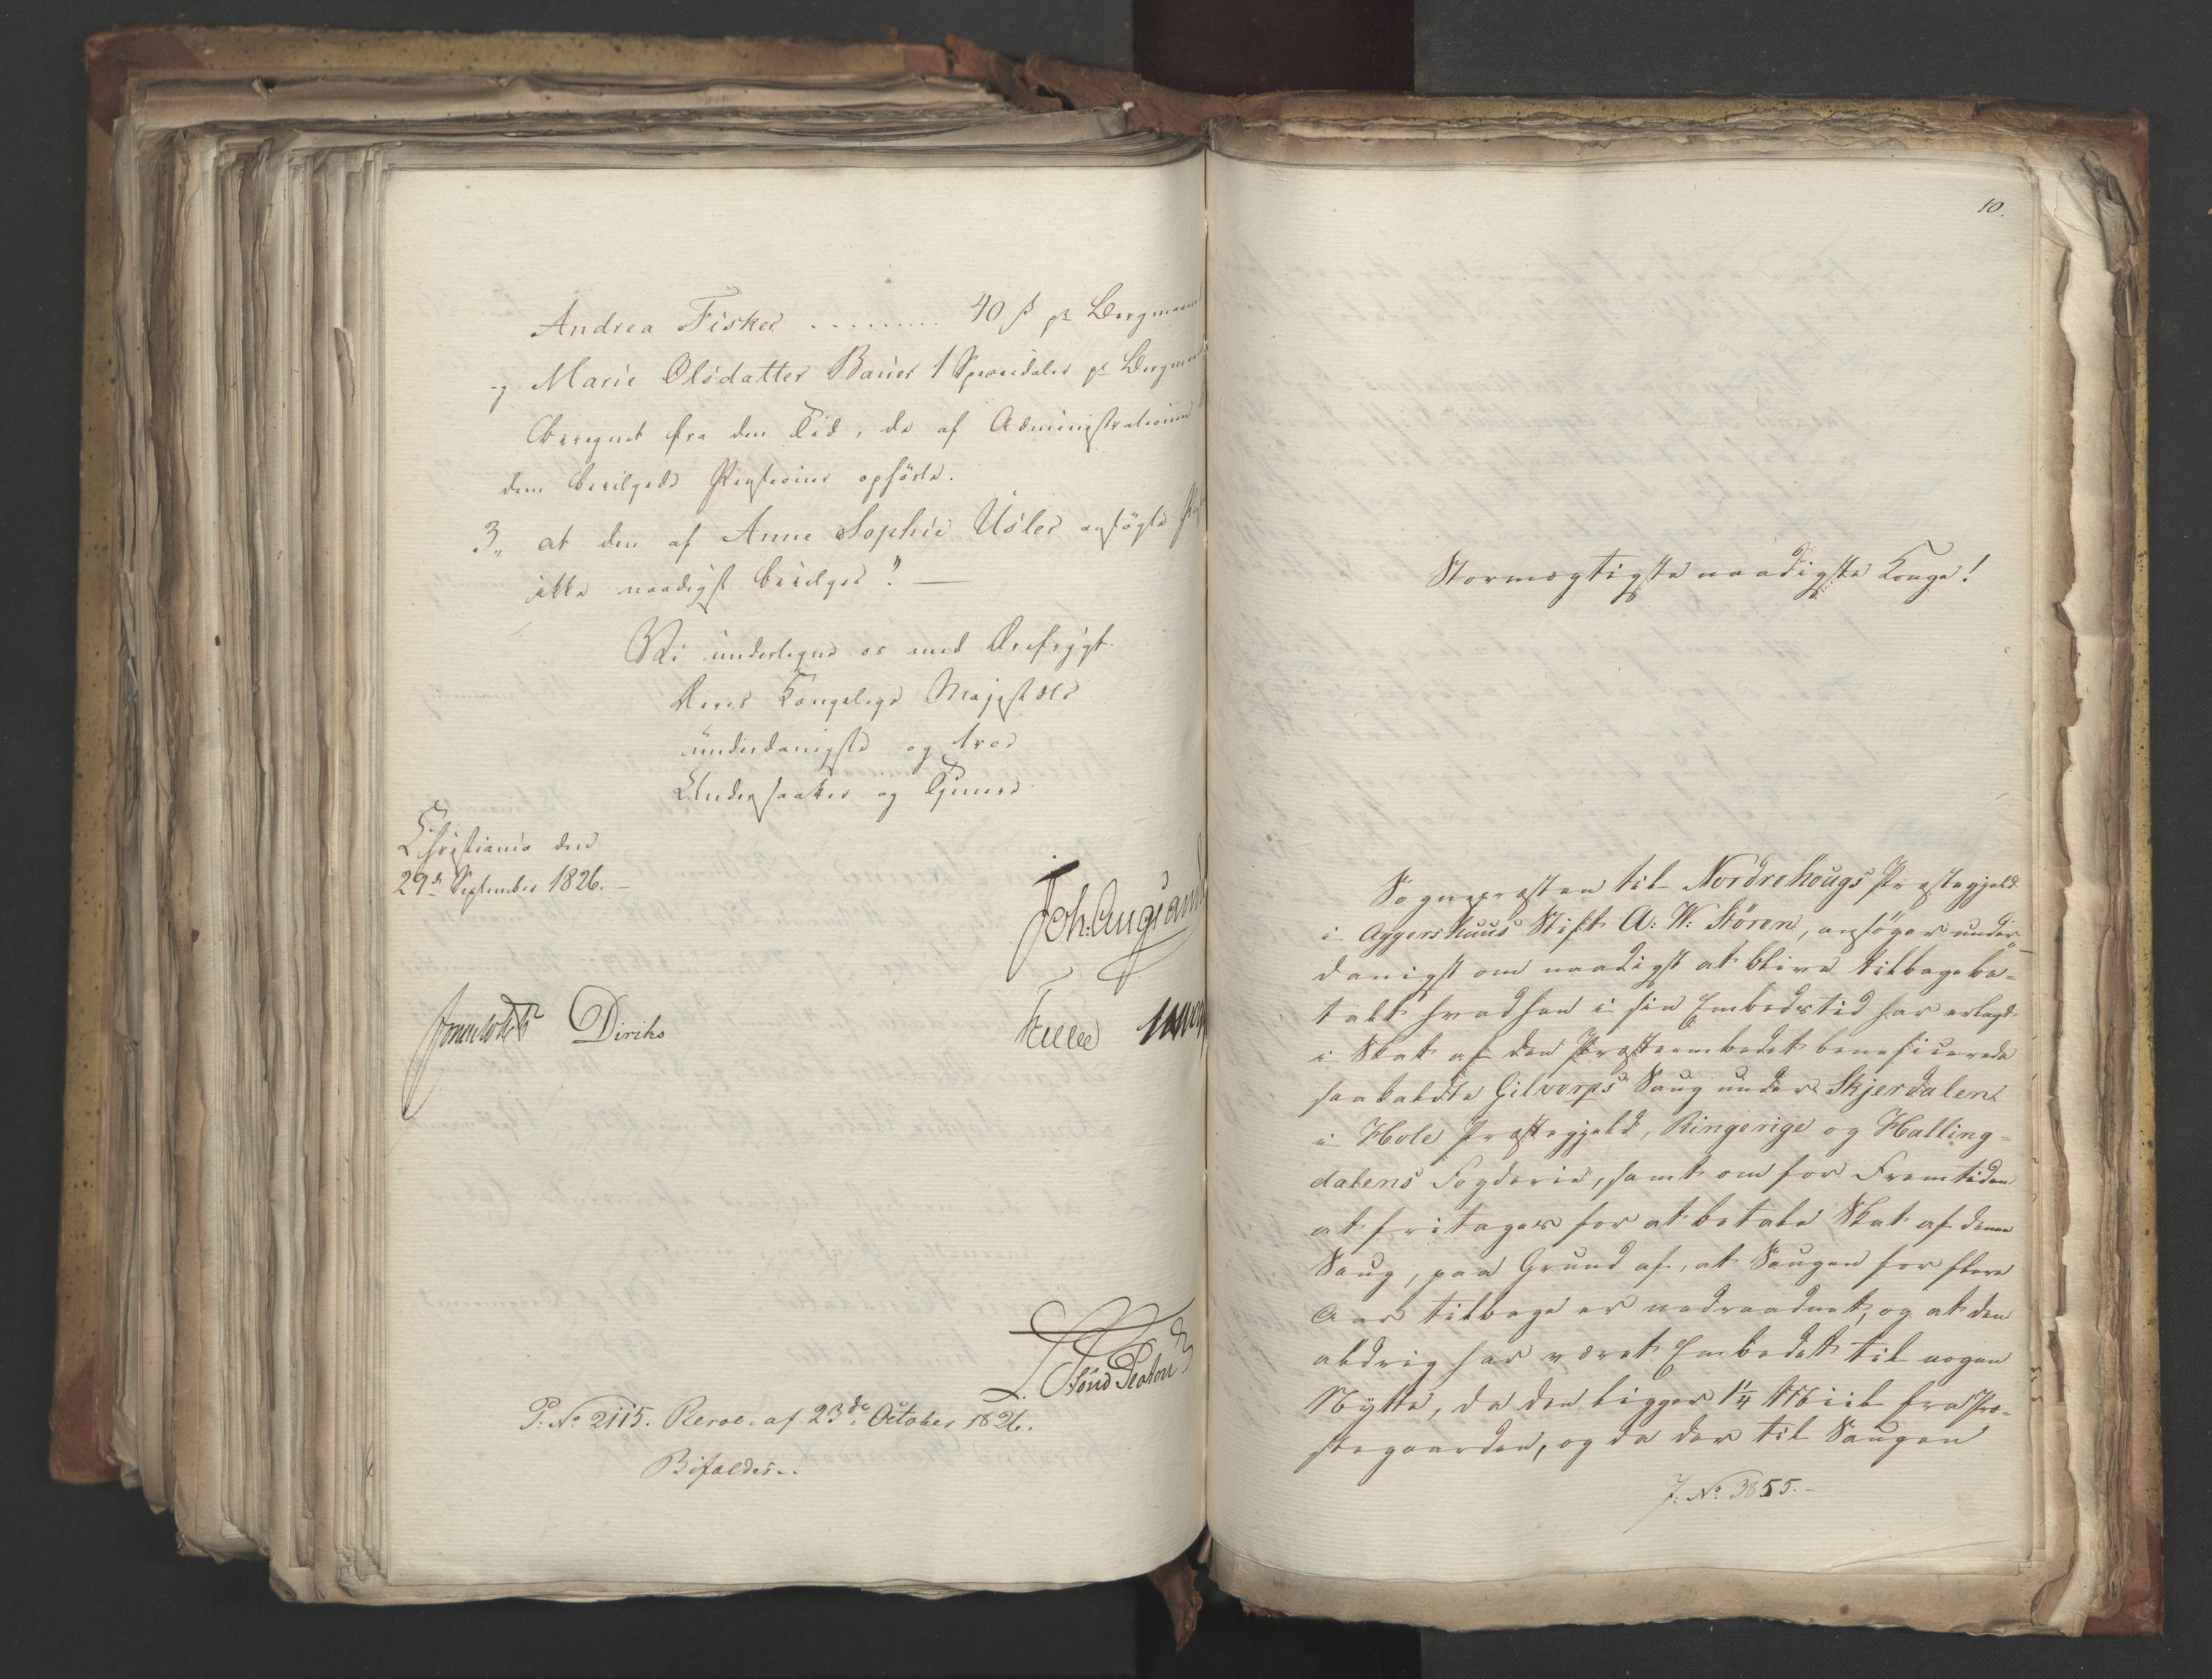 Andrea Fisker ......... 40 ß pr Bergmaaned
og Marie Olsdatter Bauer 1 Speciedaler pr Bergmaaned
beregnet fra den Tid, de af Administrationen
dem bevilgede Pensioner ophörte.
3., at den af Anne Sophie Usler ansögte
ikke naadigst bevilges". —
Vi undertegne os med Ærefrygt
Deres Kongelige Majestæts
underdanigste og troe
Undersaatter og Tjenere
Christiania den
29de September 1826. —
Diriks
P: No 2115. Resol. af 23de October 1826.
Bifaldes..
10.
Stormægtigste naadigste Konge!
Sognepræsten til Nordrehougs Præstegjeld
i Aggershuus Stift A: W: Stören, ansöger under-
danigst om naadigst at blive tilbagebe-
talt hvad han i sin Embedstid har erlagt
i Skat af den Præsteembedet beneficerede
saakaldte Gilvorps Saug under Skjerdalen
i Hole Præstegjeld, Ringerige og Halling-
dalens Fogderie, samt om for Fremtiden
at fritages for at betale Skat af denne
Saug, paa Grund af, at Saugen for flere
Aar tilbage er nedraadnet, og at den
aldrig har været Embedet til nogen
Nytte, da den ligger 1 1/4 Miil fra Præ-
stegaarden, og da der til Saugen
J: No. 3855. -